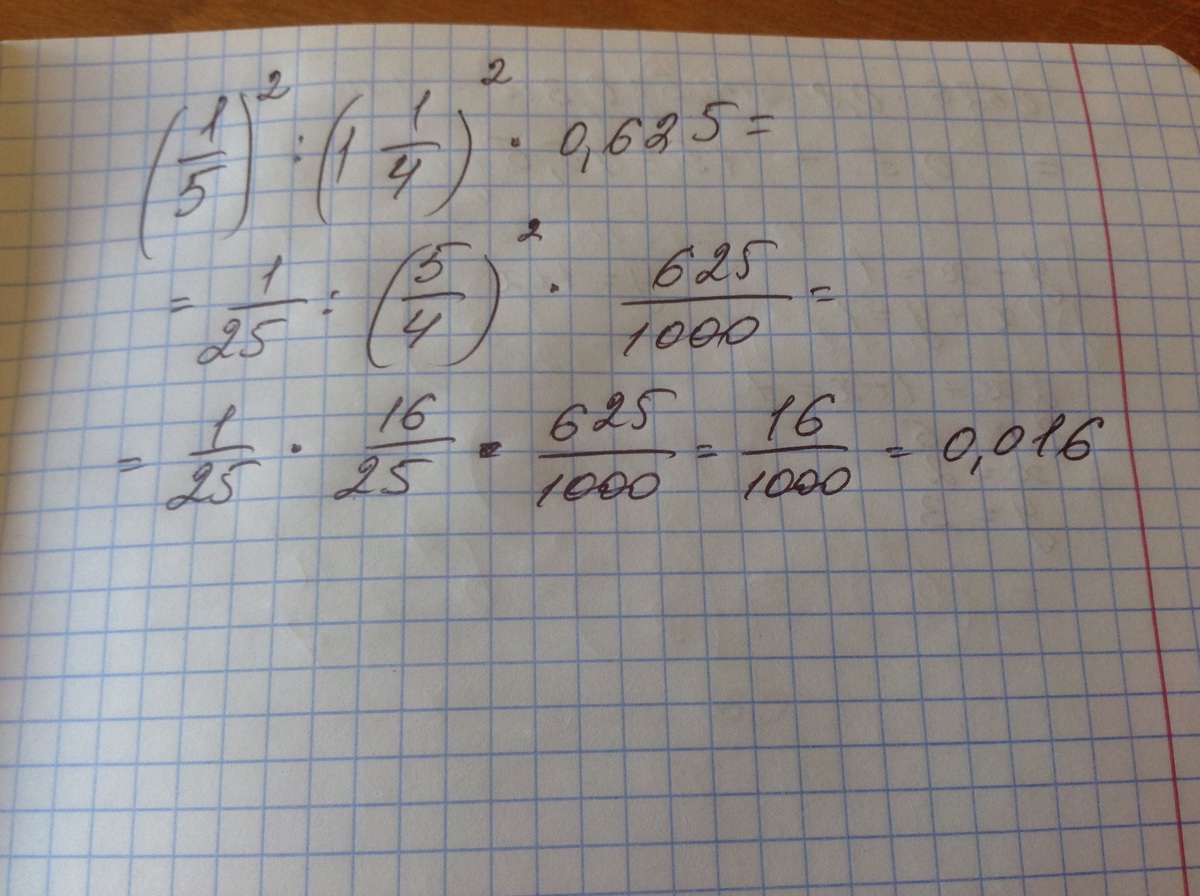 (1/5)² : (1 1/4)² · 0,625 =
= 1/25 : (5/4)² · 625/1000 =
= 1/25 · 16/25 · 625/1000 = 16/1000 = 0,016